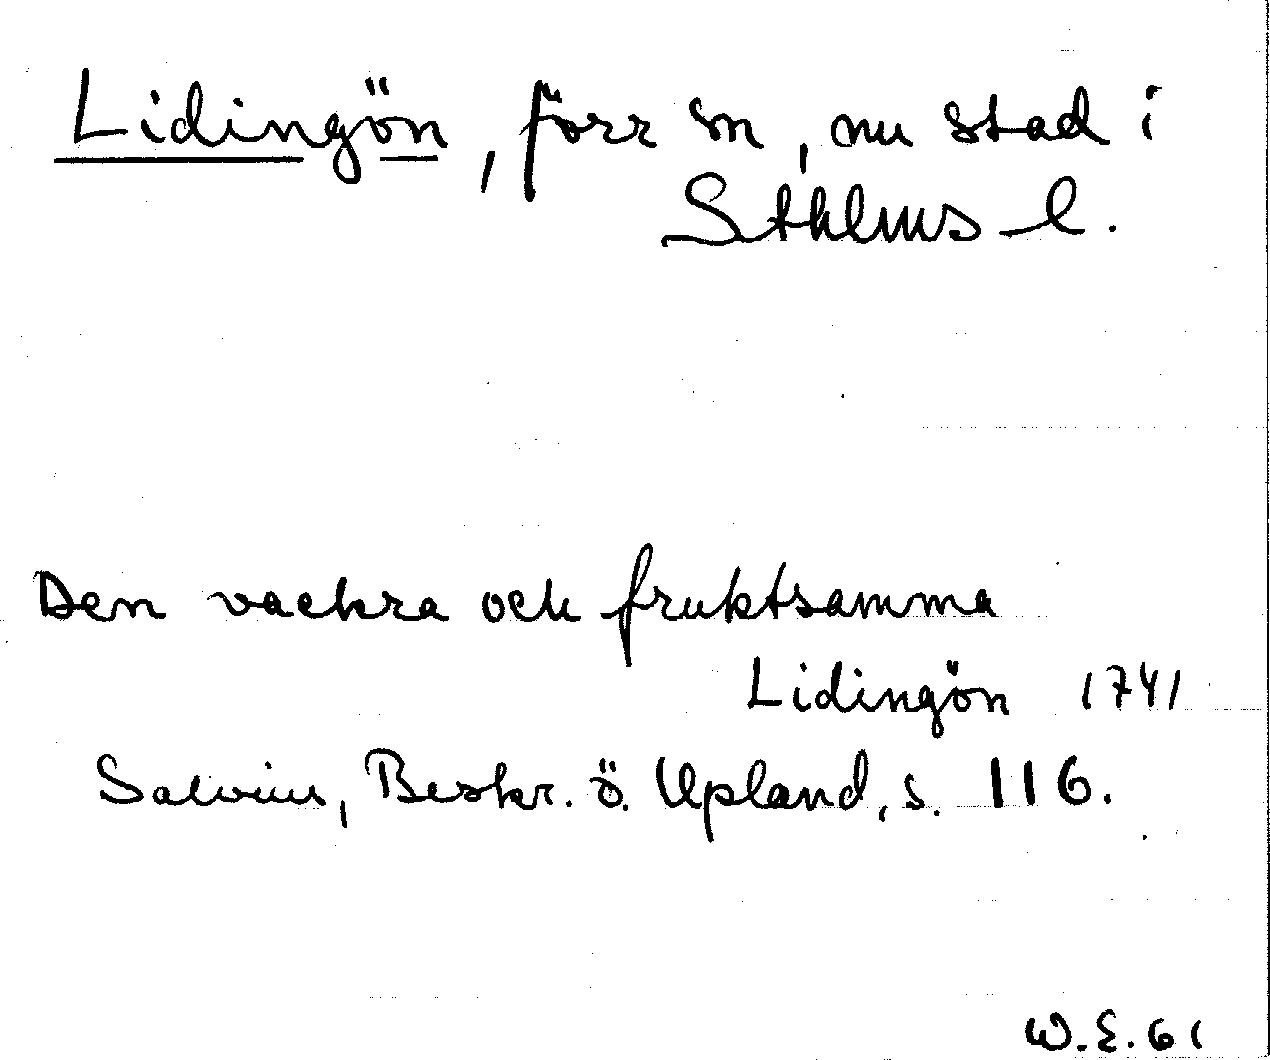 Lidingön, förr sn, nu stad i
Sthlms l.
Den vackra och fruktsamma
Lidingön 1741
Salvius, Beskr. ö. Upland, s. 116.
W.E. 61